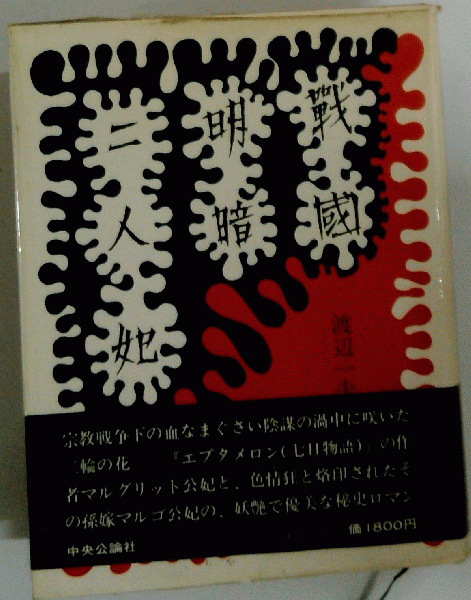 戰國
明暗
二人妃
渡辺一
宗教戦争下の血なまぐさい陰謀の渦中に咲いた
二輪の花 『エプタメロン(七日物語)』の作
者マルグリット公妃と、色情狂と烙印されたそ
の孫嫁マルゴ公妃の、妖艶で優美な秘史ロマン
中央公論社
価1800円